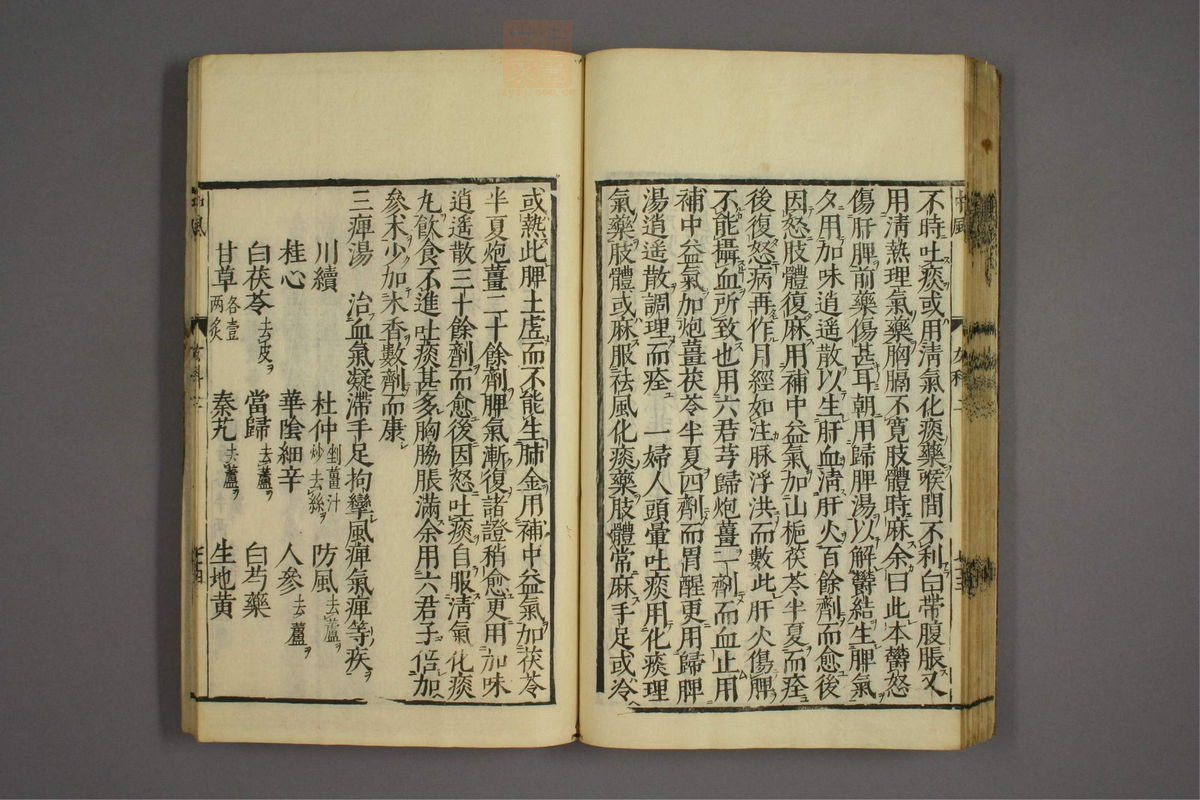 不時吐痰或用淸氣化痰藥喉間不利白帶腹脹又
用淸熱理氣藥胸膈不寬肢體時麻余曰此本欝怒
傷肝脾前藥傷甚耳朝用歸脾湯以解欝結生脾氣
夕用加味逍遥散以生肝血淸肝火百餘劑而愈後
因怒肢體復麻用補中益氣加山梔茯苓半夏而痊
後復怒病再作月經如注脉浮洪而數此肝火傷脾
不能攝血所致也用六君芎歸炮薑一劑而血止用
補中益氣加炮薑茯苓半夏四劑而胃醒更用歸脾
湯逍遥散調理而痊　一婦人頭暈吐痰用化痰理
氣藥肢體或麻服祛風化痰藥肢體常麻手足或冷
中風　女科二
或熱此脾土虛而不能生肺金用補中益氣加茯苓
半夏炮薑二十餘劑脾氣漸復諸證稍愈更用加味
逍遥散三十餘劑而愈後因怒吐痰自服淸氣化痰
丸飲食不進吐痰甚多胸膓脹滿余用六君子倍加
參术少加木香數劑而康
三痺湯　治血氣凝滯手足拘攣風痺氣痺等疾
川續　杜仲剉薑汁炒去絲　防風去蘆
桂心　華陰細辛　人參去蘆
白茯苓去皮　當歸去蘆　白芍藥
甘草各壹兩炙　秦艽去蘆　生地黄
中風